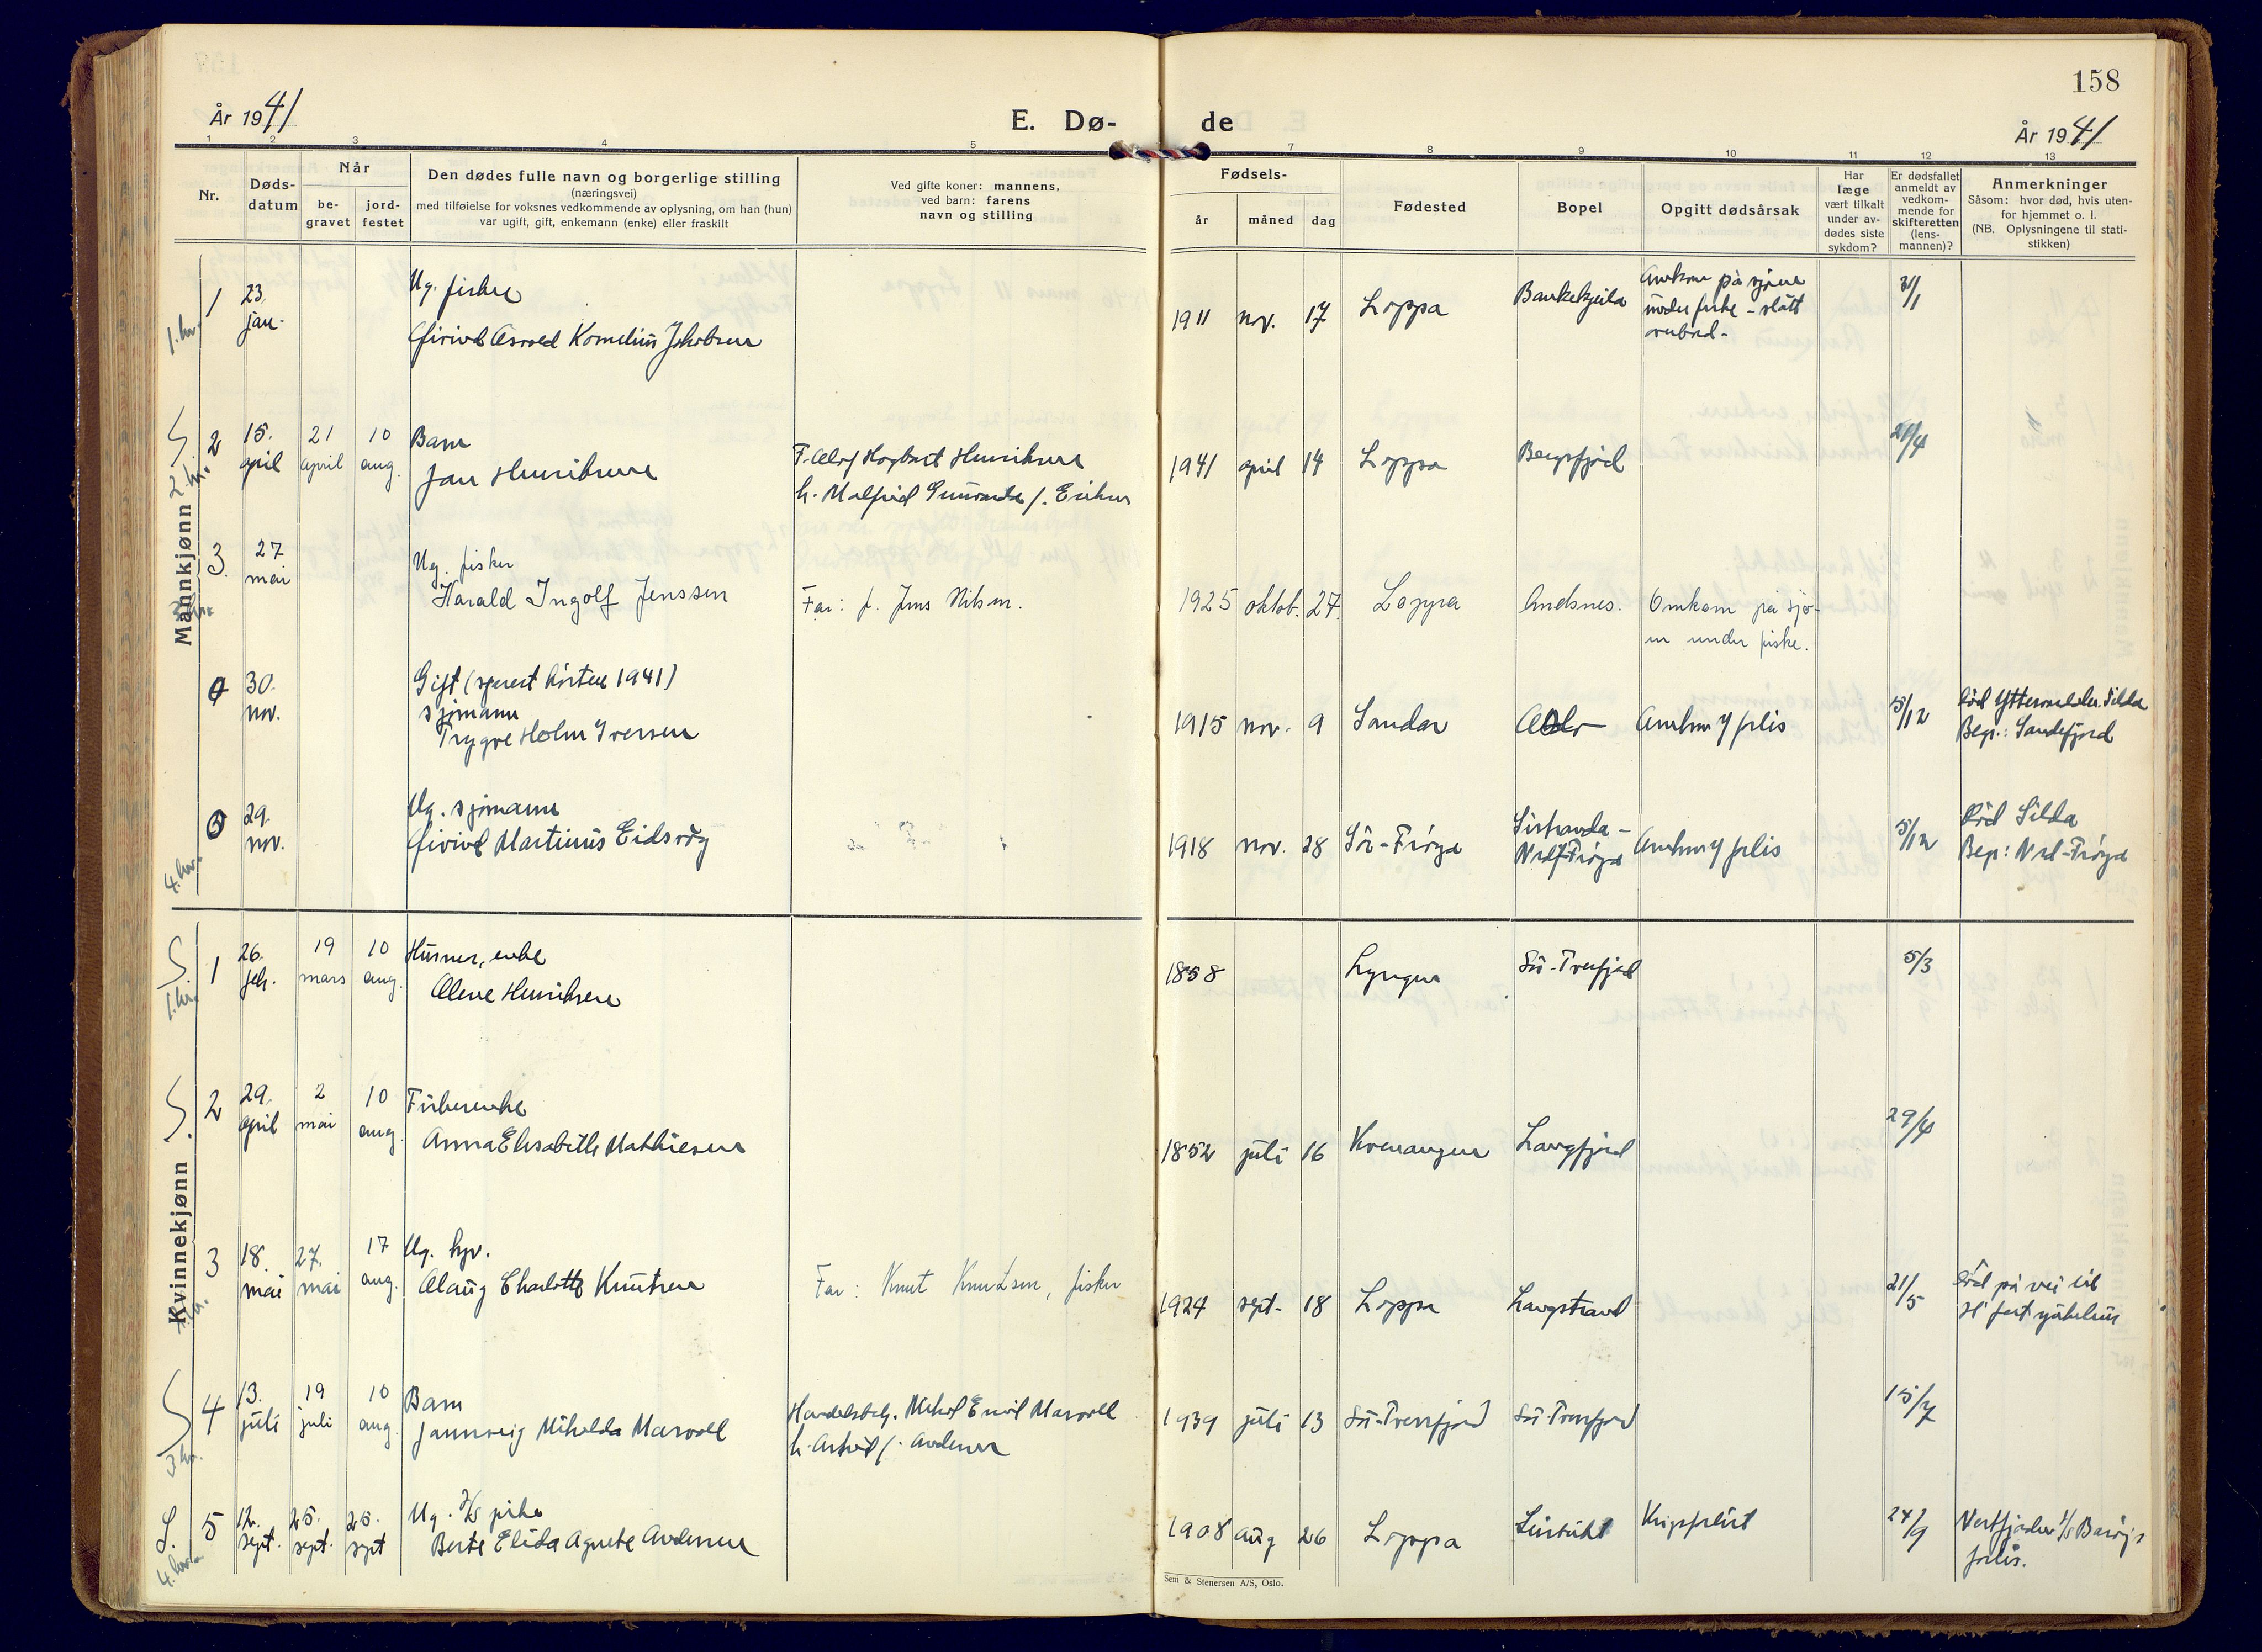 158
År 1941
E. Dø- de
År 1941
1 2 3 4 5 7 8 9 10 11 12 13
Nr.
Døds-
datum
Når
be-
gravet
jord-
festet
Den dødes fulle navn og borgerlige stilling
(næringsvei)
med tilføielse for voksnes vedkommende av oplysning, om han (hun)
var ugift, gift, enkemann (enke) eller fraskilt
Ved gifte koner: mannens,
ved barn: farens
navn og stilling
Fødsels-
år måned dag
Fødested
Bopel
Opgitt dødsårsak
Har
læge
vært tilkalt
under av-
dødes siste
sykdom?
Er dødsfallet
anmeldt av
vedkom-
mende for
skifteretten
(lens-
mannen)?
Anmerkninger
Såsom: hvor død, hvis uten-
for hjemmet o. l.
(NB. Oplysningene til stati-
stikken)
Mannkjønn
1. kv.
1 23. jan.
Ug. fisker
Asvald Kornelius Jakobsen
1911 nov. 17 Loppa
på sjøen
under fiske -
31/1
S. 2. kv.
2 15. april 21 april 10 aug.
Barn
Jan Henriksen
F. Alof Hagbart Henriksen
h. Malfrid f. Eriksen
1941 april 14 Loppa Bergsfjord
21/4
3. 27 mai
Ug. fisker
Harald Ingolf Jenssen
Far: f. Jens Nilsen.
1925 oktob. 27. Loppa Andsnes. Omkom på sjø-
en under fiske.
4 30. nov.
Gift (senest høsten 1941)
sjømann
Trygve Holm Iversen
1915 nov. 9 Sandar Oslo
5/12
Silda
Begr.: Sandefjord
4. kv.
5 29. nov.
Ug. sjømann
Eivind Martinus Eidsvåg
1918 nov. 28 Sör-Fröya Sistranda -
Nord-Fröya
5/12
Död Silda
Begr: Nord-Fröya
Kvinnekjønn
S. 1. kv.
1 26. feb. 19 mars 10 aug.
Husmor, enke
Olene Henriksen
1858 Lyngen
5/3
S.
2 29. april 2 mai 10 aug.
Fiskerenke
Anna Elisabeth Mathiesen
1852 juli 16 Kvenangen Langfjord
29/4
3 18. mai 27. mai 17 aug.
Ug. hjv.
Olaug Charlotte Knutsen
Far: Knut Knutsen, fisker
1924 sept. 18 Loppa Langstrand
21/5
Död på vei til
H.fest sykehus
S 3. kv.
4 13. juli 19 juli 10 aug.
Barn
Jannveig Mikolda Marvoll
Handelsbetj. Mikal Emil Marvoll
h. f. Andersen
1939 juli 13
15/7
S. 4. kv.
5 12. sept. 25. sept. 25. sept
Ug. pike
Berte Elida Agnete Andersen
1908 aug 26 Loppa Krigsforlist
24/9
Vestfjorden Barøys
forlis.
Sem & Stenersen A/S, Oslo.